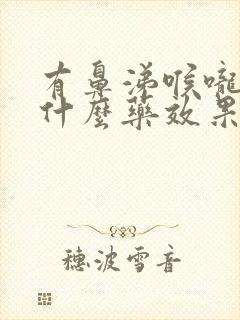 有鼻涕喉嚨
什麼藥效果
穗波雪音